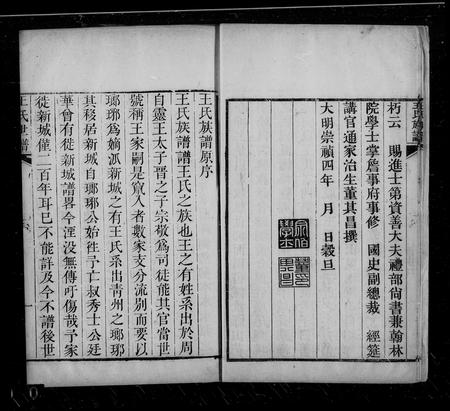 朽云　賜進士第資善大夫禮部尚書兼翰林
院學士掌詹事府事修　國史副總裁　經筵
講官通家治生董其昌撰
大明崇禎四年　月　日穀旦
王氏族譜原序
王氏族譜譜王氏之族也王之有姓系出於周
自靈王太子晉之子宗敬爲司徒能其官當世
號稱王家嗣是竄入者數家支分流別而要以
瑯琊爲嫡派新城之有王氏系出青州之瑯琊
其移居新城自瑯琊公始徃予亡叔秀士公廷
華曾有徙新城譜畧今湮没無傳吁傷哉予家
徙新城僅二百年耳已不能詳及今不譜後世
王氏世譜
王氏族譜